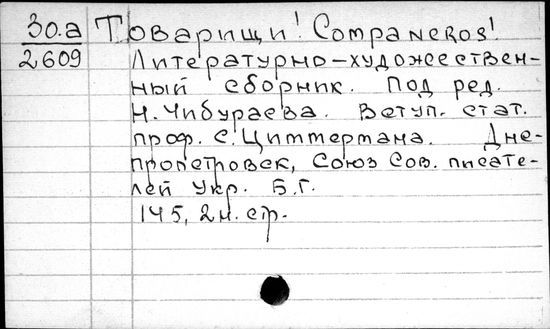 30.а Товарищи! Companeros!
2609 Литературно-художествен-
ный сборник. Под ред.
Н. Чибураева. Вступ. стат.
проф. С. Циммермана. Дне-
пропетровск, Союз Сов. писате-
лей Укр. Б.Г.
145, 2 н. стр.